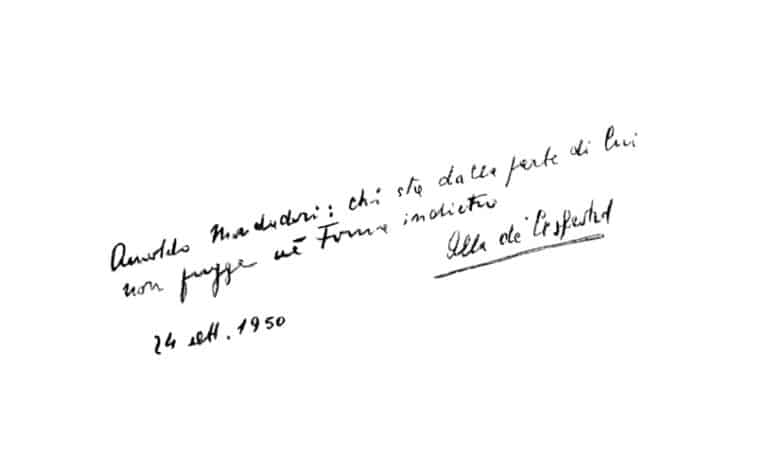 Arnoldo Mondadori: chi sta dalla parte di lui
non fugge nè torna indietro
Alba de' Céspedes
24 sett. 1950